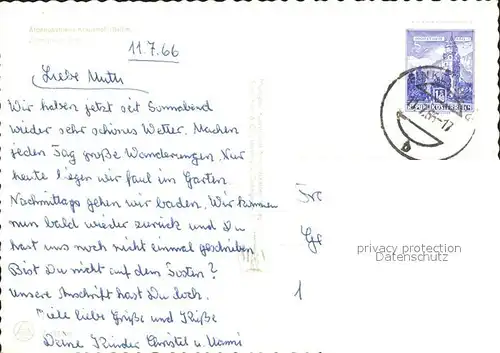 11.7.66
Liebe Mutti
Wir haben jetzt seit Sonnabend
wieder sehr schönes Wetter. Machen
jeden Tag große Wanderungen. Nur
heute liegen wir faul im Garten.
Nachmittags gehen wir baden. Wir kommen
nun bald wieder zurück und Du
hast uns noch nicht einmal geschrieben
Bist Du nicht auf dem Posten?
Unsere Anschrift hast Du doch.
Viele liebe Grüße und Küße
Deine Kinder Christel u. Manni
Fr
1
privacy protection
Datenschutz